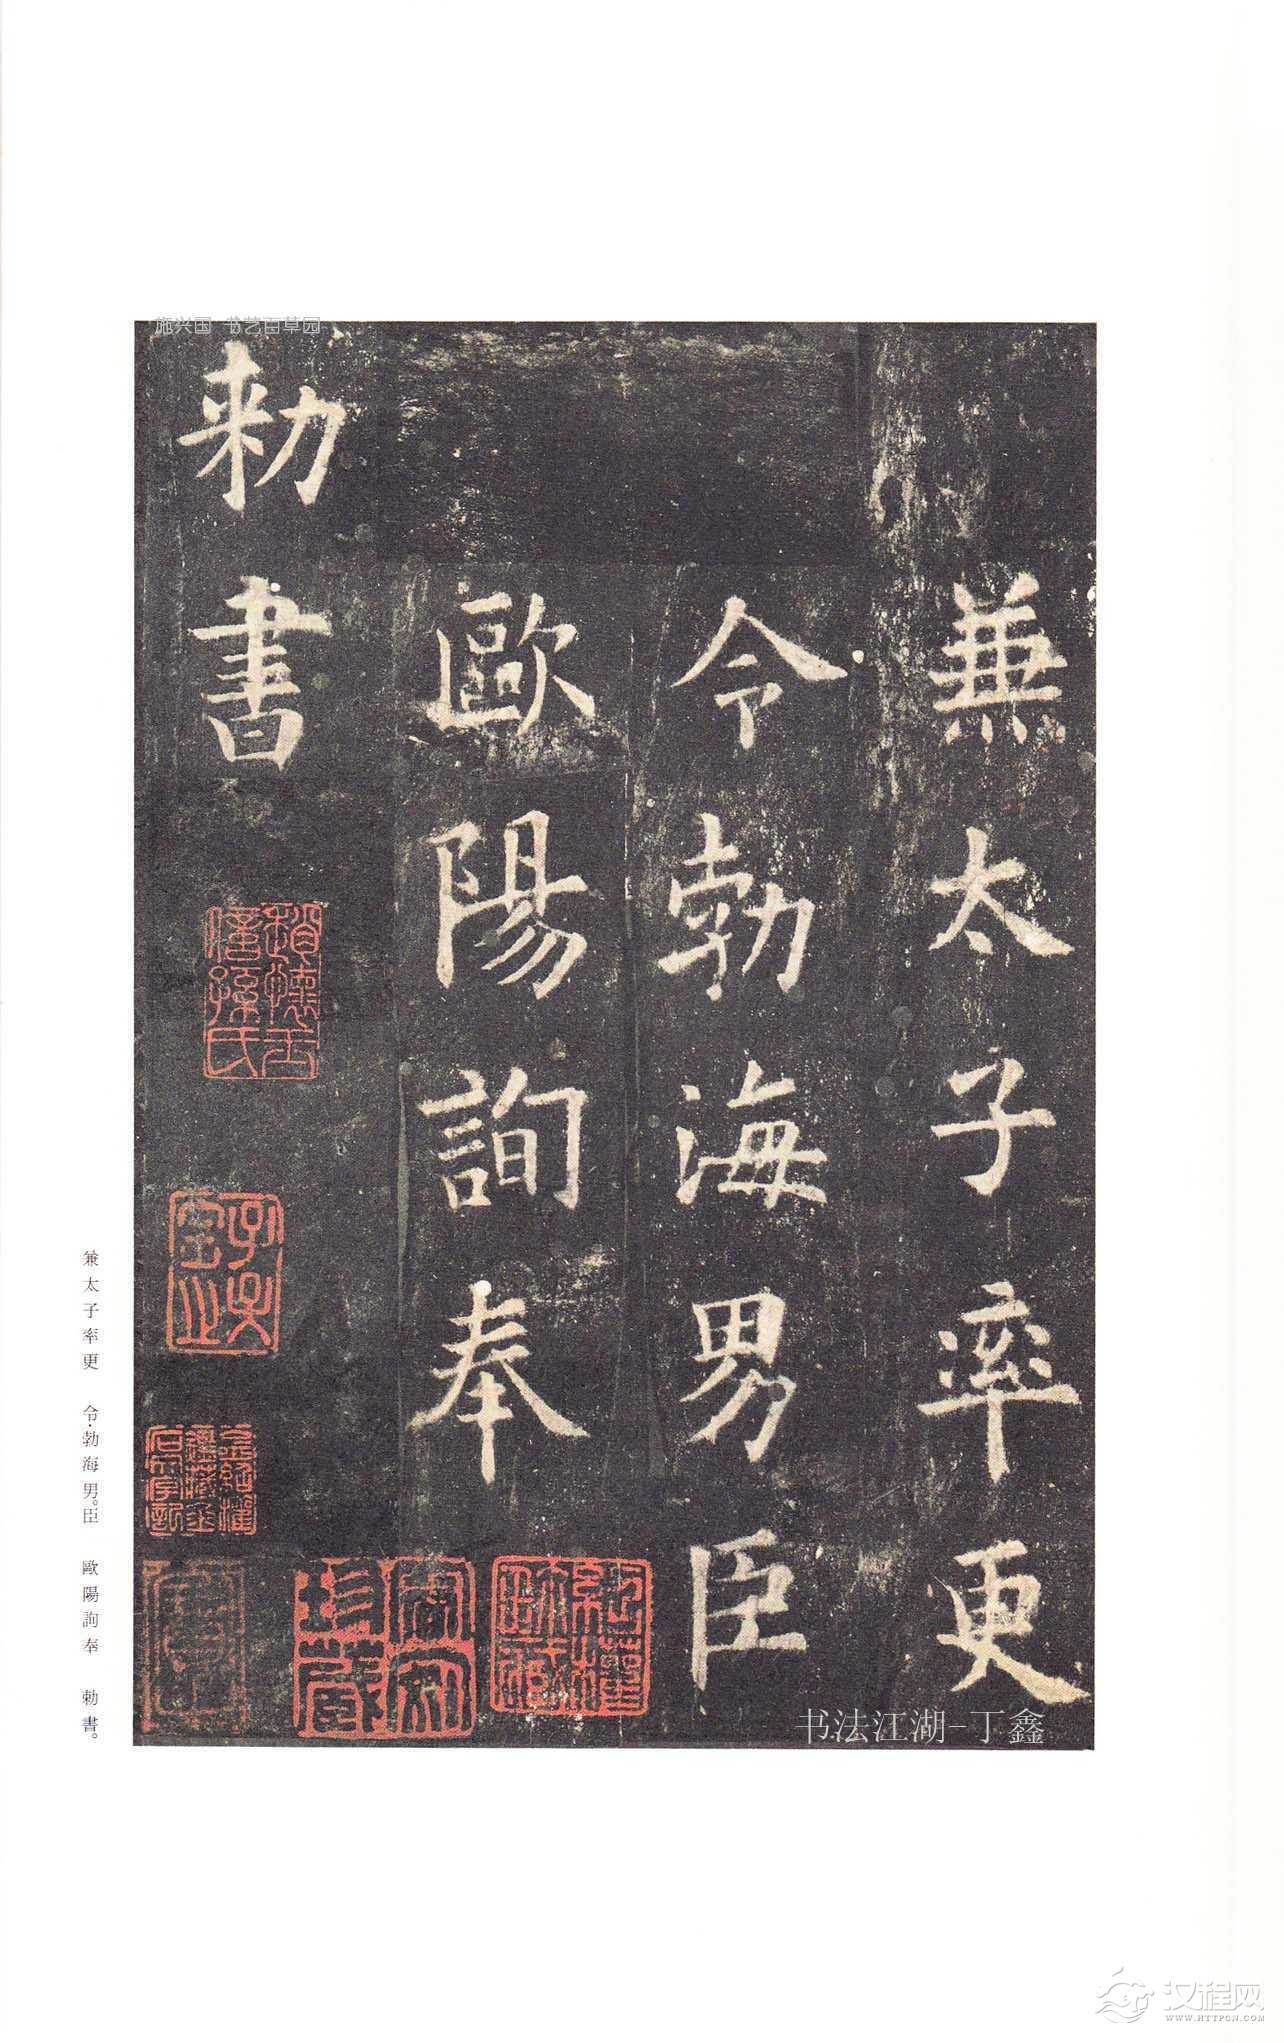 施兴国 书艺百草园
兼太子率更
令勃海男臣
歐陽詢奉
勑書
珍藏
书法江湖-丁鑫
兼太子率更 令·勃海男。臣 歐陽詢奉 勅書。
汉程网
WWW.HTTPCN.COM